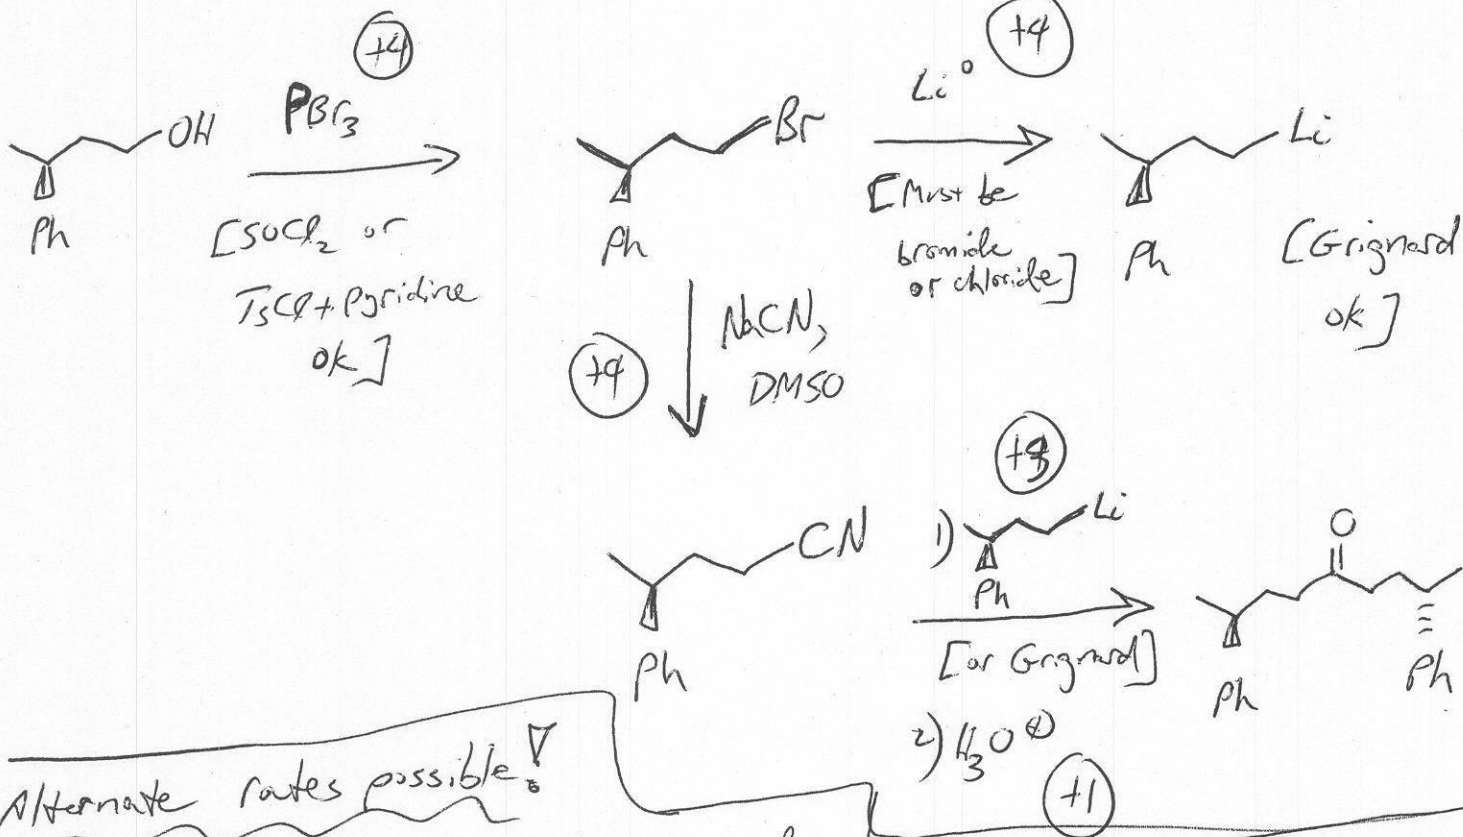 +4
PBr3
OH
Ph
[SOCl2 or
TsCl + Pyridine
OK]
Br
Ph
+4
Li°
[Must be
bromide
or chloride]
Li
Ph
[Grignard
OK]
+4
NaCN,
DMSO
CN
Ph
1)
Li
Ph
[or Grignard]
2) H3O⊕
+1
O
Ph
Ph
Alternate routes possible!